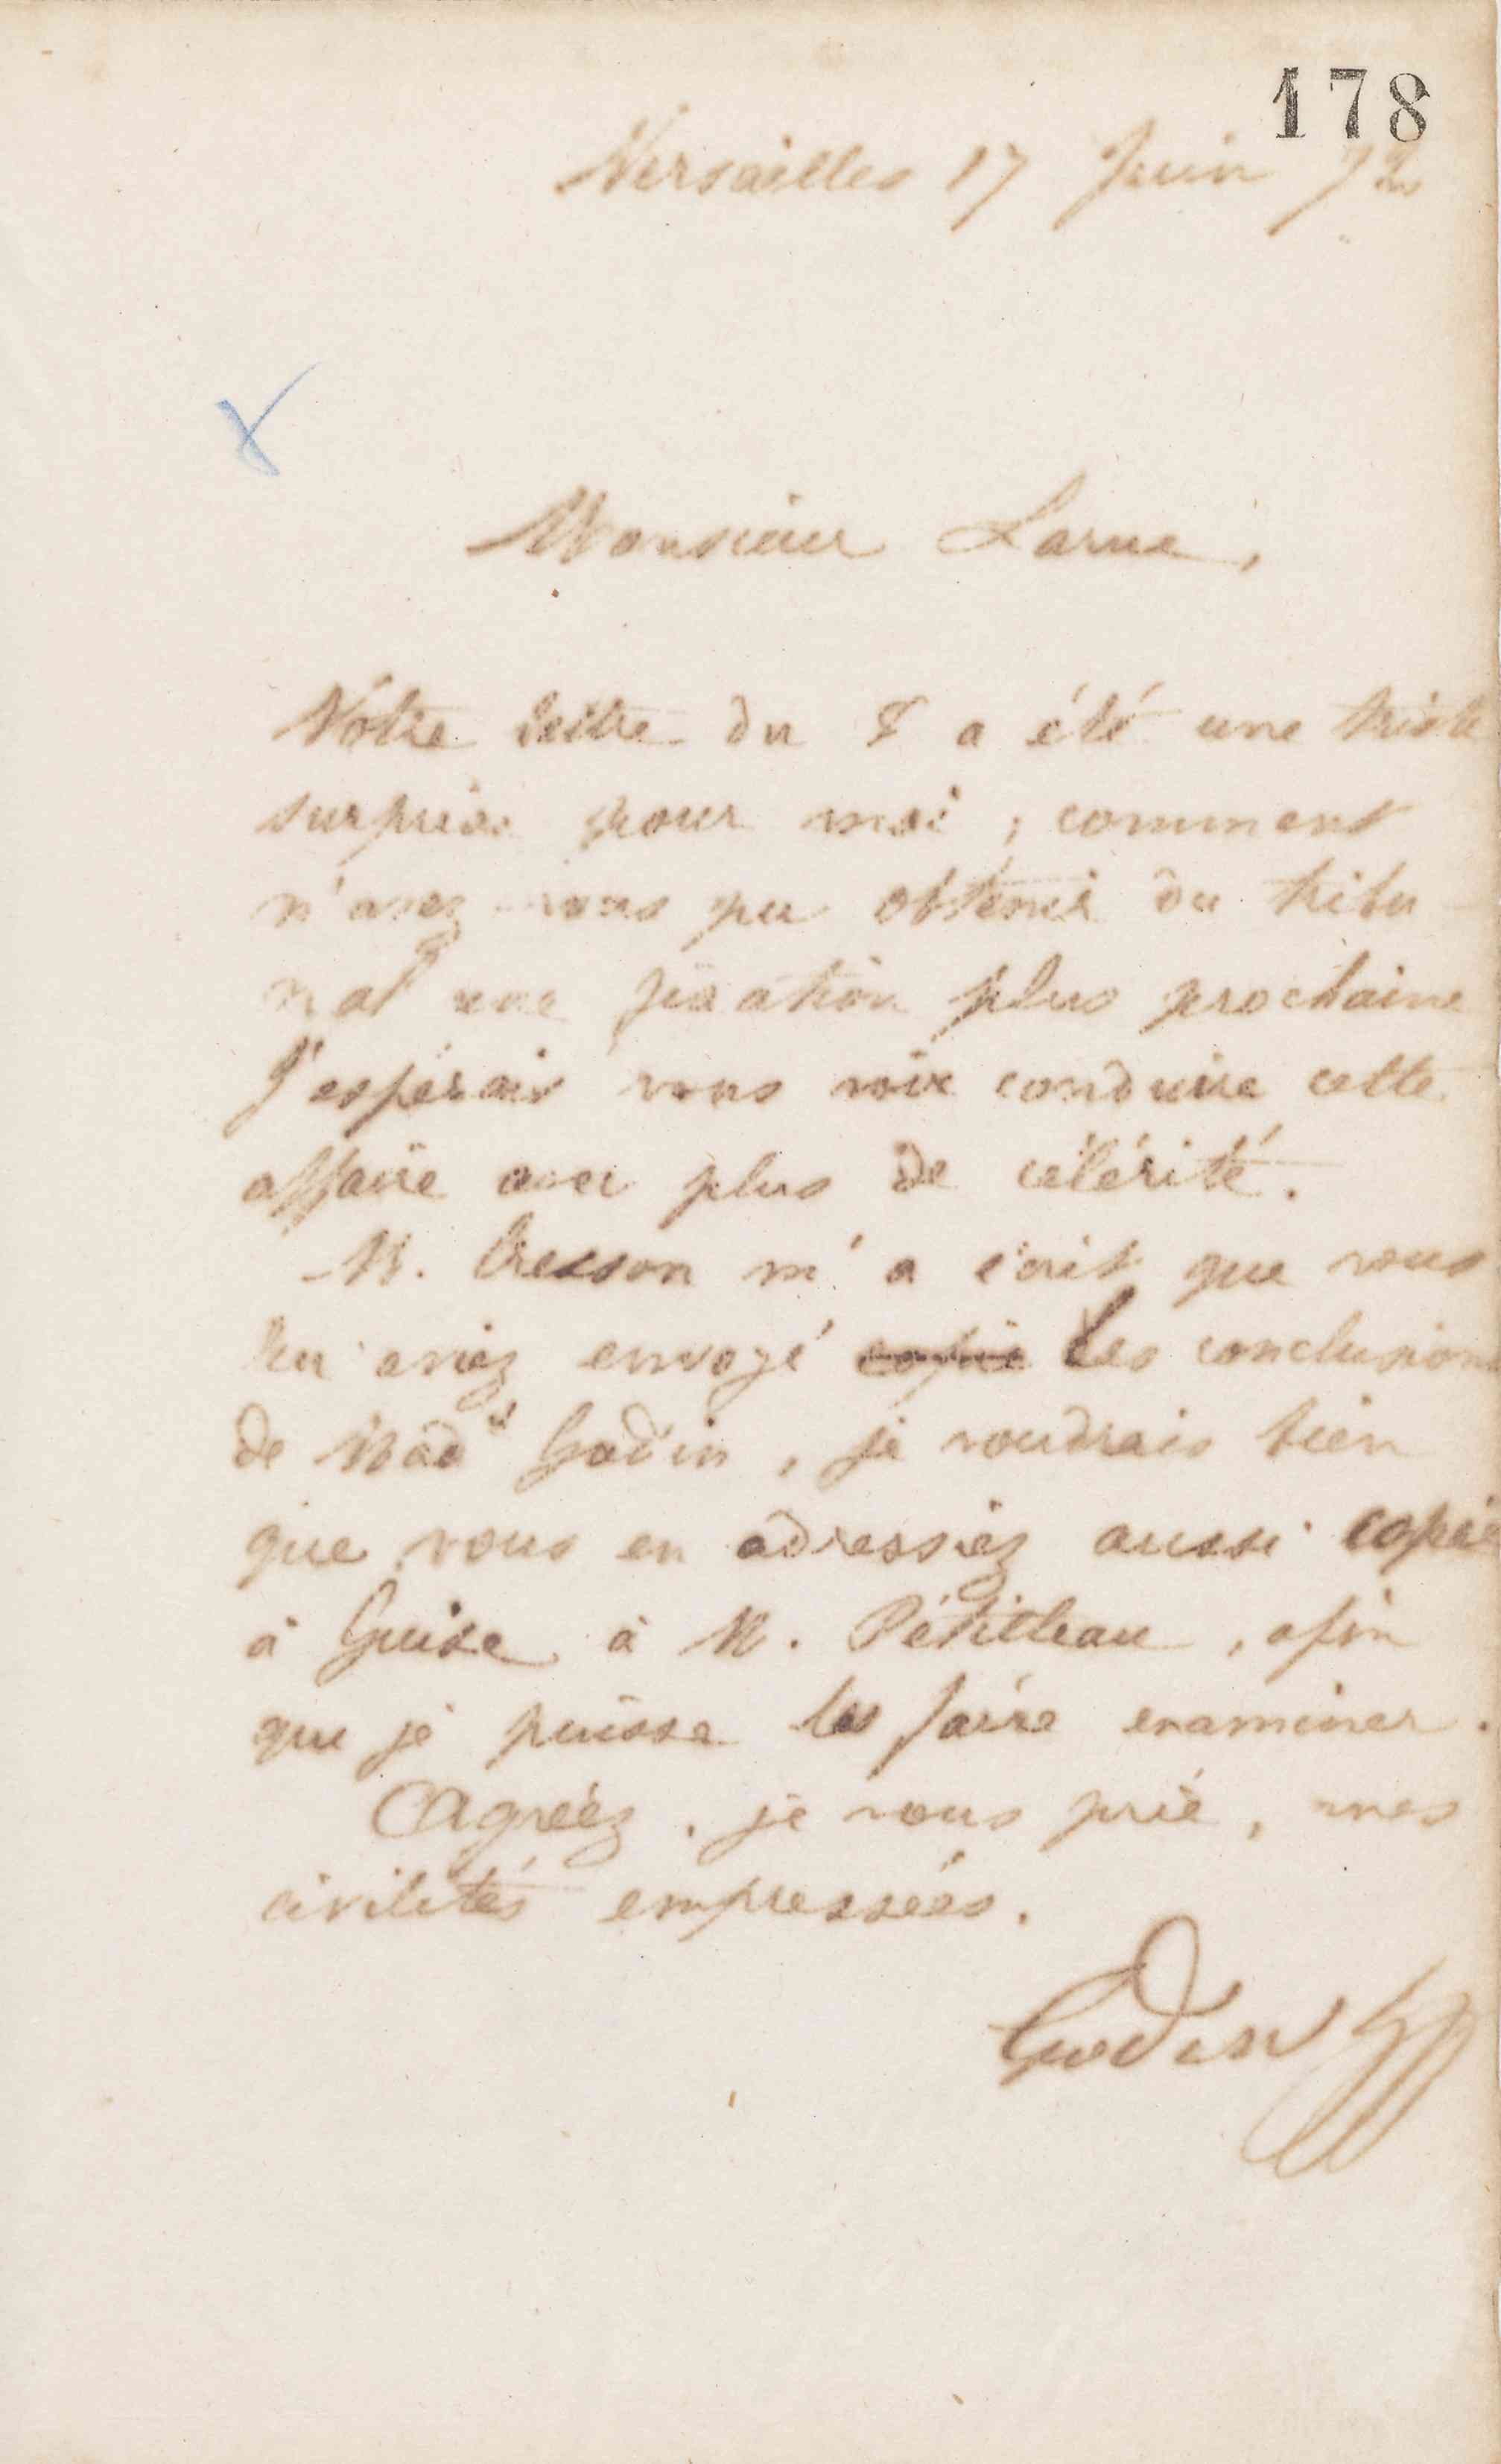 178
Versailles 17 Juin 72
Monsieur Larue,
Votre lettre du 8 a été une triste
surprise pour moi ; comment
n'avez-vous pu obtenir du tribu-
nal une fixation plus prochaine
J'espérais vous voir conduire cette
affaire avec plus de célérité.
M. Cresson m'a écrit que vous
lui aviez envoyé copie les conclusions
de Made Godin, je voudrais bien
que vous en adressiez aussi copie
à Guise à M. Pétilleau, afin
que je puisse les faire examiner.
Agréez, je vous prie, mes
civilités empressées.
Godin